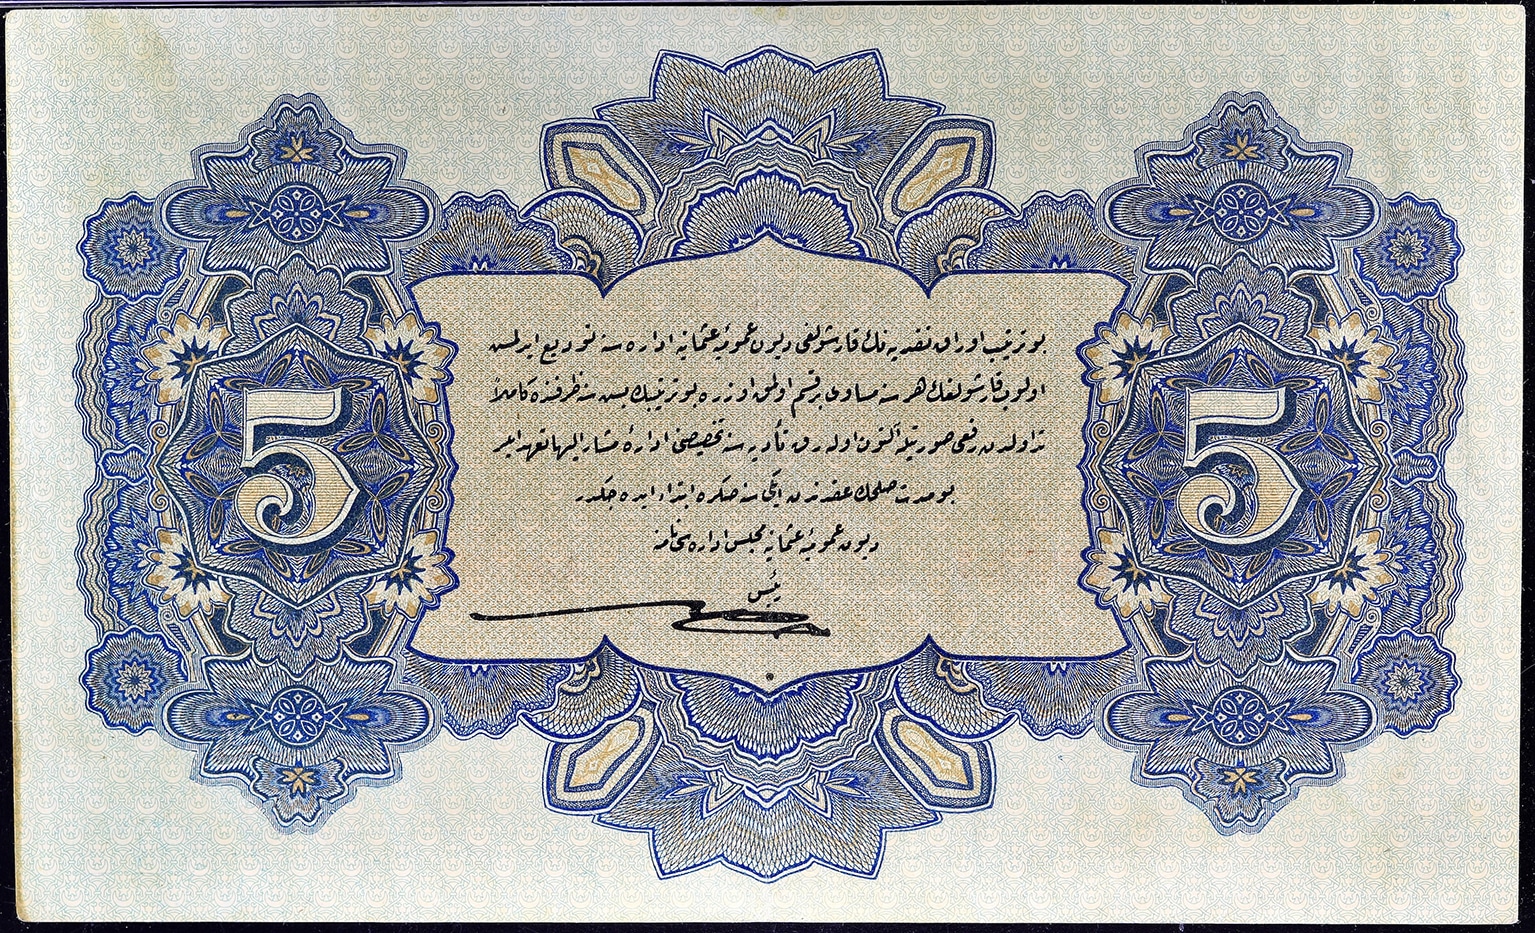 بو ترتیب اوراق نقدیه نك قارشولغی دیون عمومیهٔ عثمانیه اداره سنه تودیع ایدلمش
اولوب قارشولغك هر سنه مساوی بر قسم اولمق اوزره بو ترتیبك بش سنه ظرفنده كاملاً
تداولدن رفعی صورتیله آلتون اوله رق تأدیه سنه تخصیصنی ادارهٔ مشار الیها تعهد ایلر
بو مدت صلحك عقدندن ایكی سنه صكره ابتدا ایده جكدر
دیون عمومیهٔ عثمانیه مجلس اداره سی نامنه
رئیس
5 5